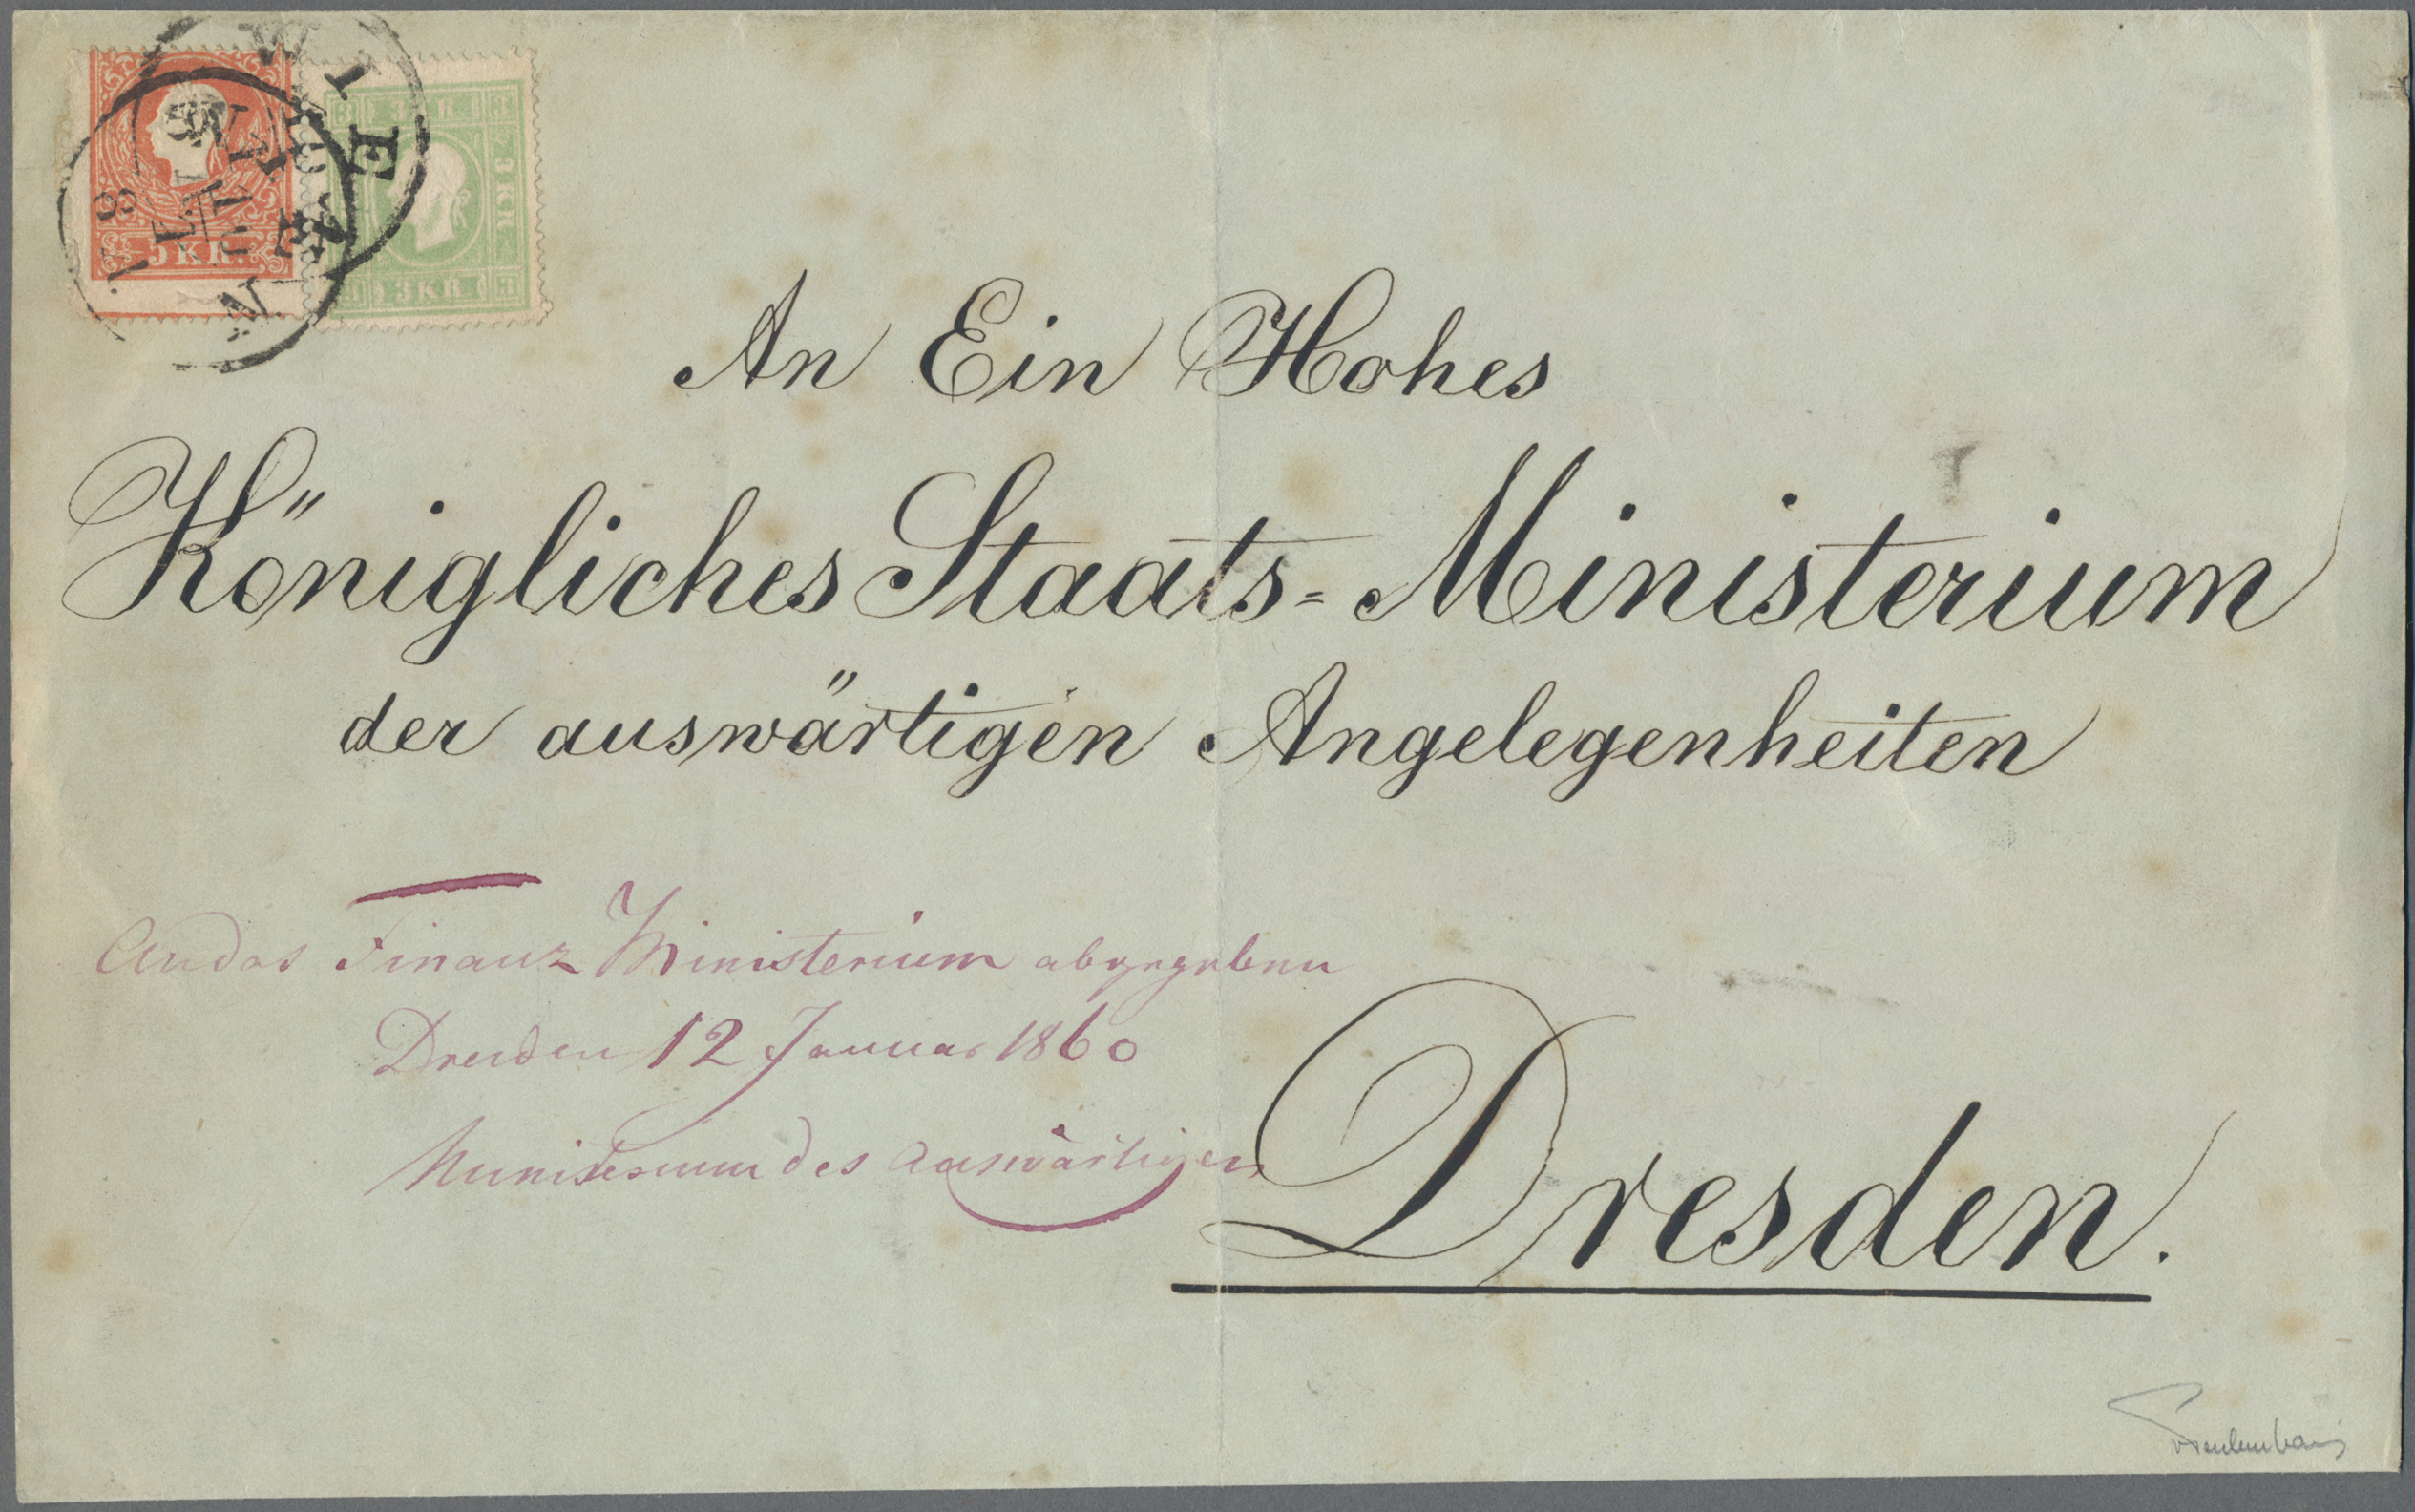 WIEN
5 KR.
3 KR.
3 KR.
3 KR.
An Ein Hohes
Königliches Staats=Ministerium
der auswärtigen Angelegenheiten
An das Finanz Ministerium abgegeben
Dresden 12 Januar 1860
Ministerium des Auswärtigen
Dresden.